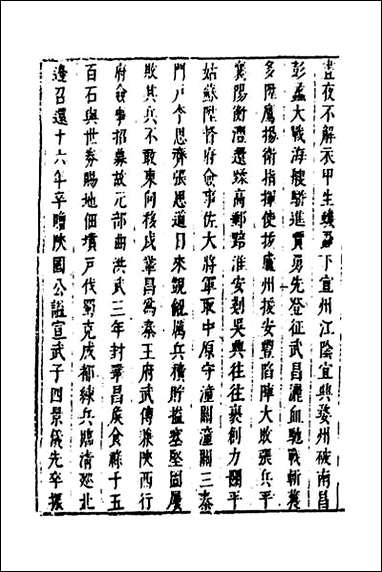 晝夜不解衣甲生蟣虱下宣州江陰宜興婺州破南昌
彭孟大戰海艘驂進賈勇先登征武昌灑血馳戰斬獲
多陞鷹揚衛指揮使援廬州援安豐陷陣大敗張兵平
襄陽衡澧還蹂高郵踣淮安剗吳興往往裹創力鬬平
姑蘇陞督府僉事佐大將軍取中原守潼關潼關三秦
門戶李思齊張思道日來覬覦厲兵積貯搤塞堅固屢
敗其兵不敢東向移戍鞏昌為秦王府武傅兼陝西行
府僉事招募故元部曲洪武三年封鞏昌侯食祿千五
百石與世券賜地佃墳戶伐蜀克成都練兵臨清廵北
邊召還十六年卒贈陝國公謚宣武子四景儀先卒振